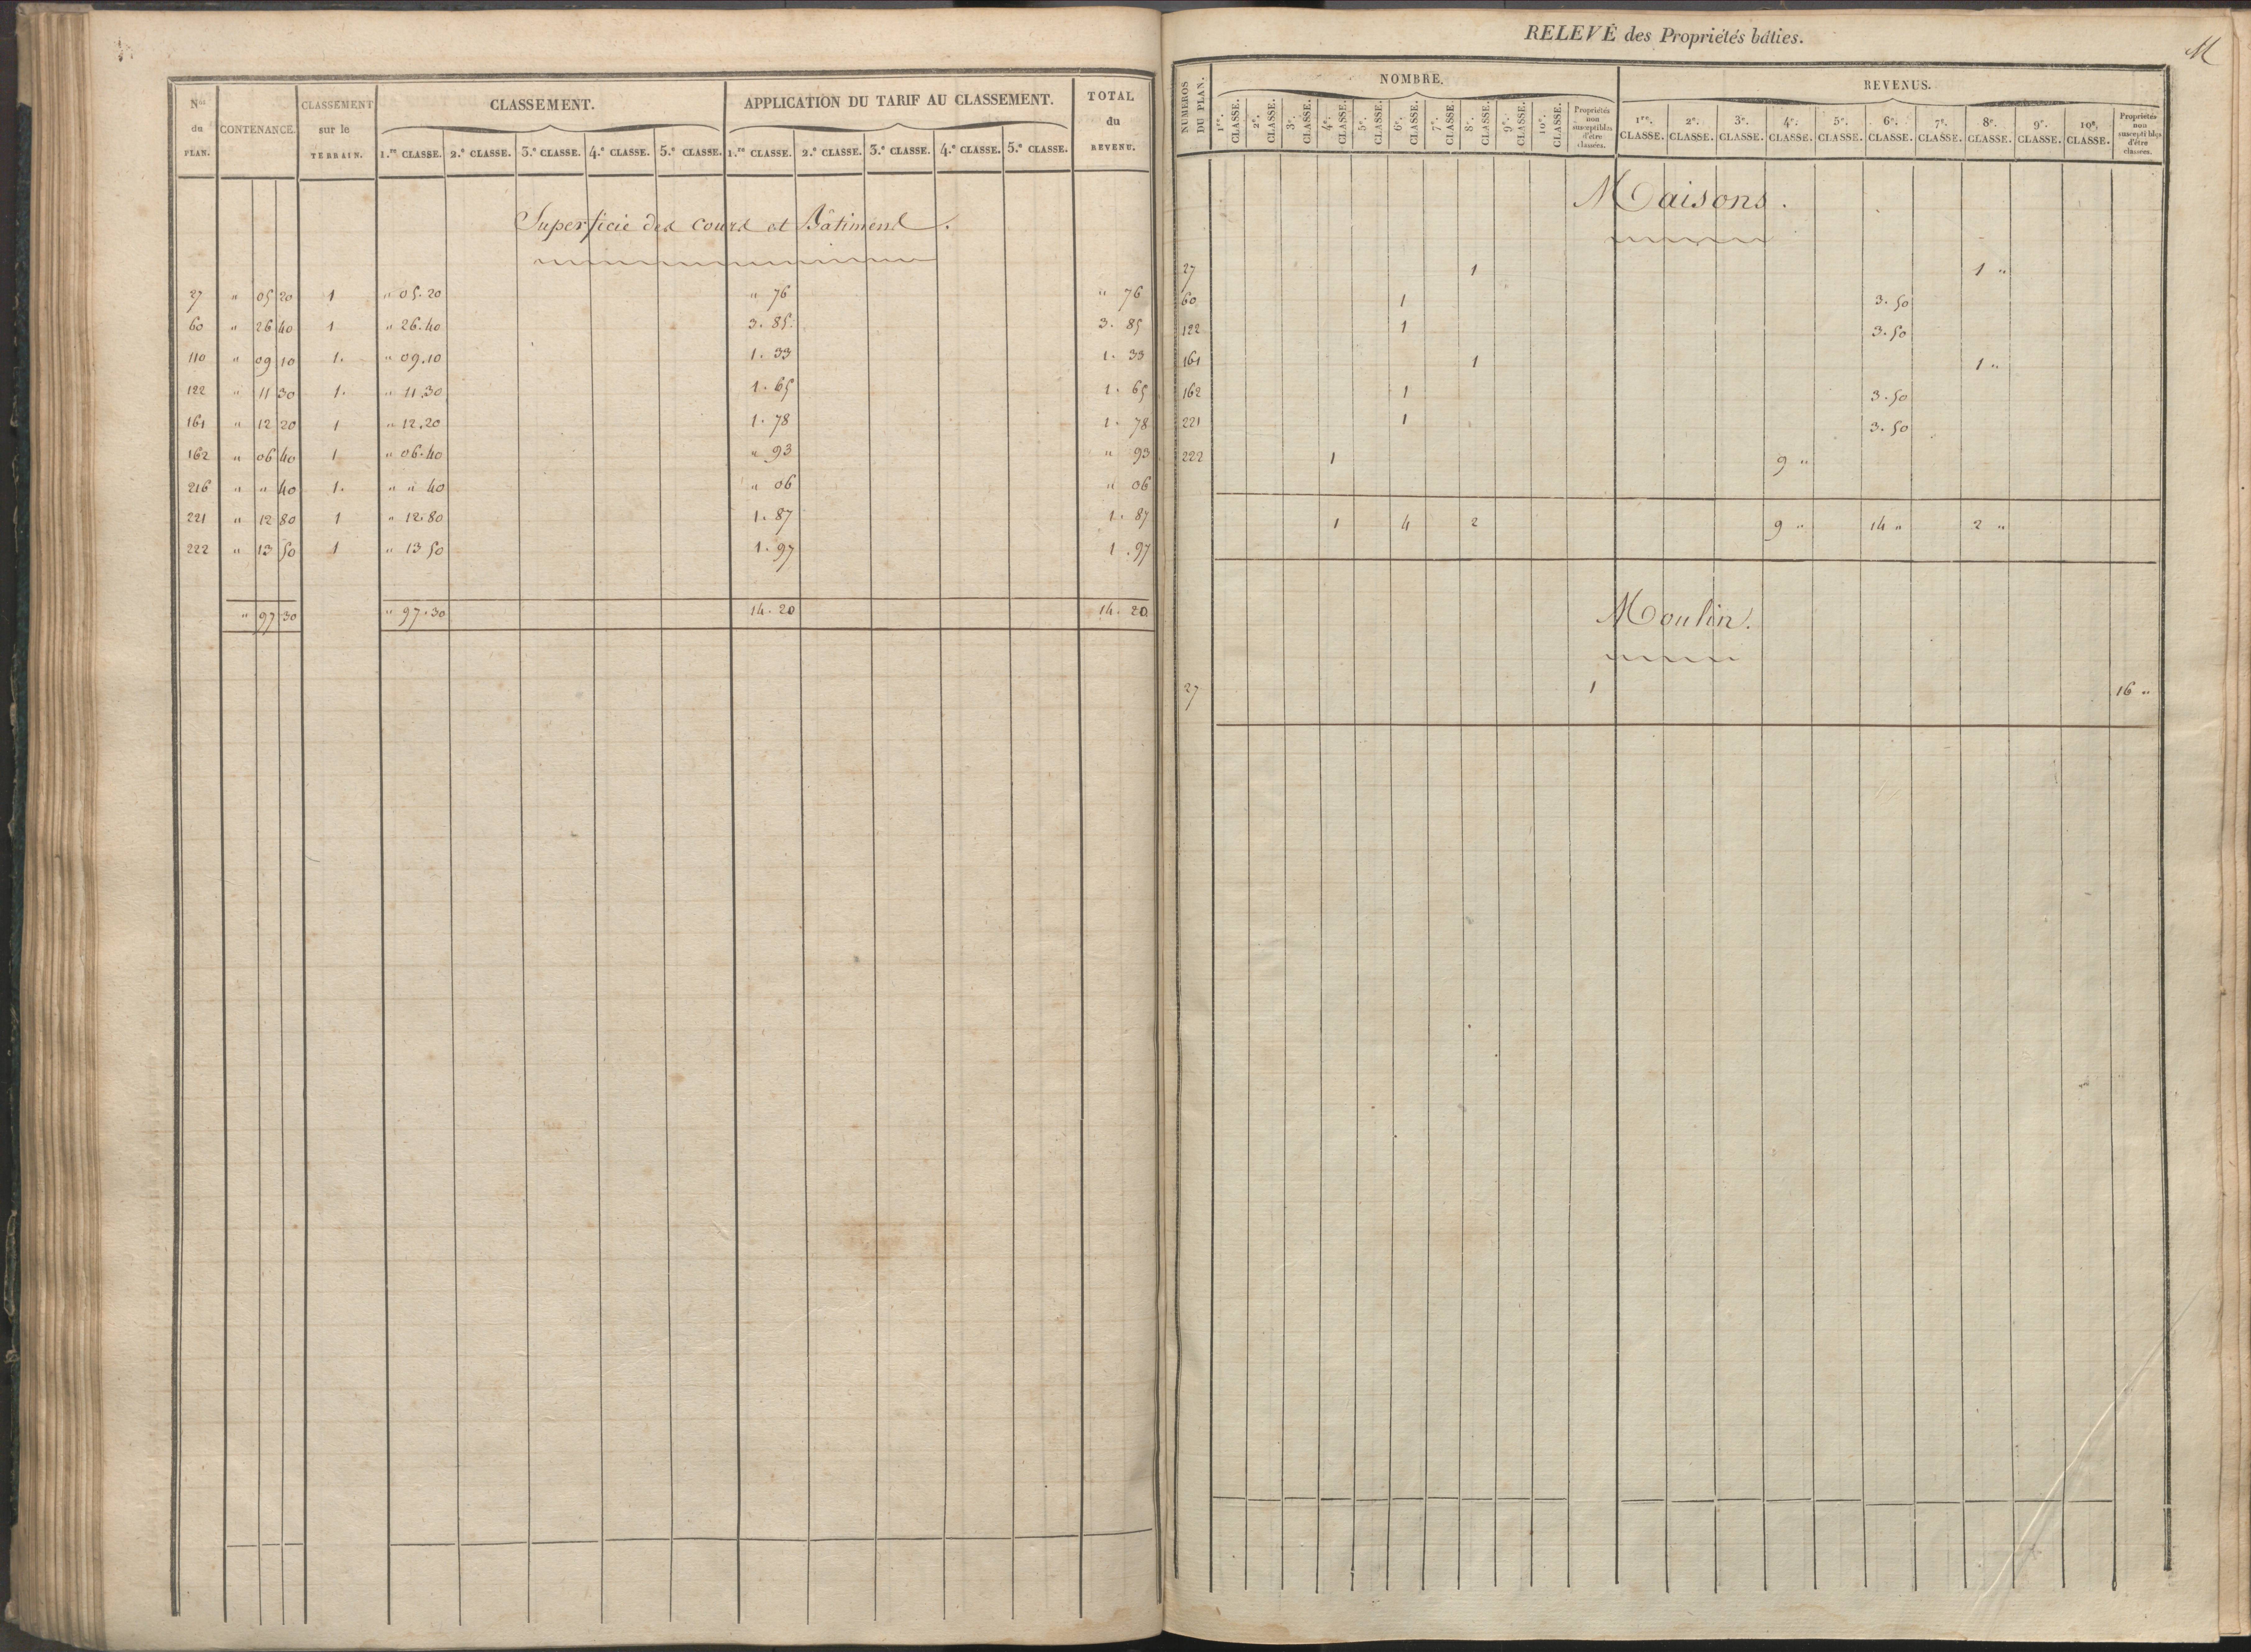 Nos du PLAN. CONTENANCE. CLASSEMENT sur le TERRAIN. CLASSEMENT. APPLICATION DU TARIF AU CLASSEMENT. TOTAL du REVENU.
1.re CLASSE. 2.e CLASSE. 3.e CLASSE. 4.e CLASSE. 5.e CLASSE. 1.re CLASSE. 2.e CLASSE. 3.e CLASSE. 4.e CLASSE. 5.e CLASSE.
Superficie des Cours et Bâtiment.
27 " 05 20 1 " 05.20 " 76 " 76
60 " 26 40 1 " 26.40 3.85 3.85
110 " 09 10 1. " 09.10 1.33 1.33
122 " 11 30 1. " 11.30 1.65 1.65
161 " 12 20 1 " 12.20 1.78 1.78
162 " 06 40 1 " 06.40 " 93 " 93
216 " " 40 1. " " 40 " 06 " 06
221 " 12 80 1 " 12.80 1.87 1.87
222 " 13 50 1 " 13 50 1.97 1.97
" 97 30 " 97.30 14.20 14.20
RELEVÉ des Propriétés bâties.
M
NUMEROS DU PLAN. NOMBRE. REVENUS.
1re. CLASSE. 2e. CLASSE. 3e. CLASSE. 4e. CLASSE. 5e. CLASSE. 6e. CLASSE. 7e. CLASSE. 8e. CLASSE. 9e. CLASSE. 10e. CLASSE. Propriétés non susceptibles d'être classées. 1re. CLASSE. 2e. CLASSE. 3e. CLASSE. 4e. CLASSE. 5e. CLASSE. 6e. CLASSE. 7e. CLASSE. 8e. CLASSE. 9e. CLASSE. 10e. CLASSE. Propriétés non susceptibles d'être classées.
Maisons.
27 1 1 "
60 1 3.50
122 1 3.50
161 1 1 "
162 1 3.50
221 1 3.50
222 1 9 "
1 4 2 9 " 14 " 2 "
Moulin.
27 1 16 "